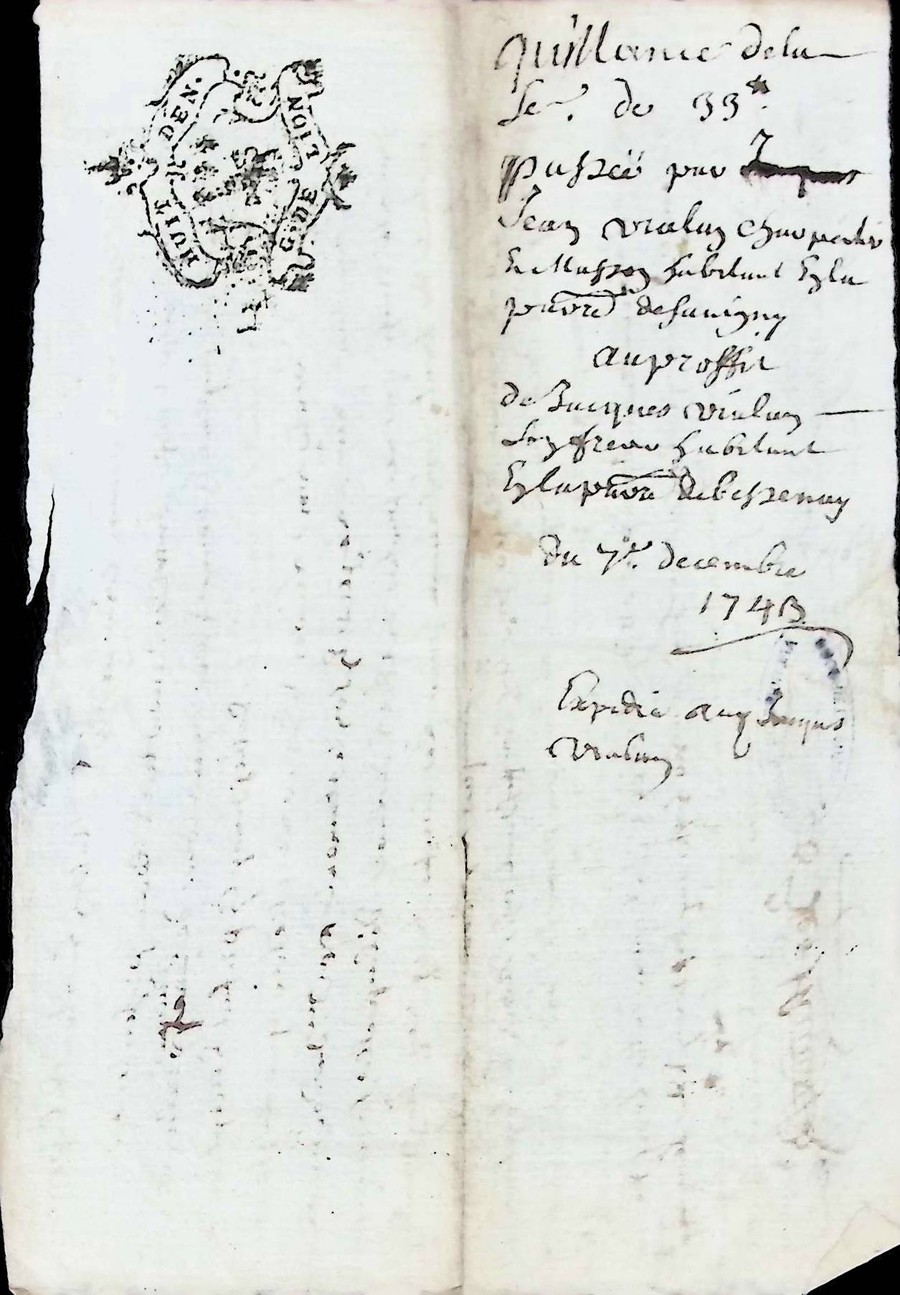 HUIT DEN.
G. DE LION
quittance de la
So.e de 33 tt
passée par J
Jean vialon Charpentier
Et Masson habitant En la
parre de Savigny
au proffit
de Jacques vialon
Son frere habitant
En la parre de bessenay
du 7e decembre
174
Expedié aud Jacques
vialon